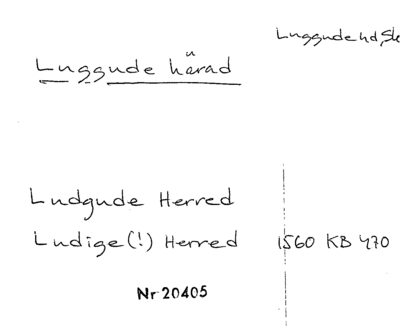 Luggude hd, Sk
Luggude härad
Ludgude Herred
Ludige (!) Herred 1560 KB 470
Nr 20405